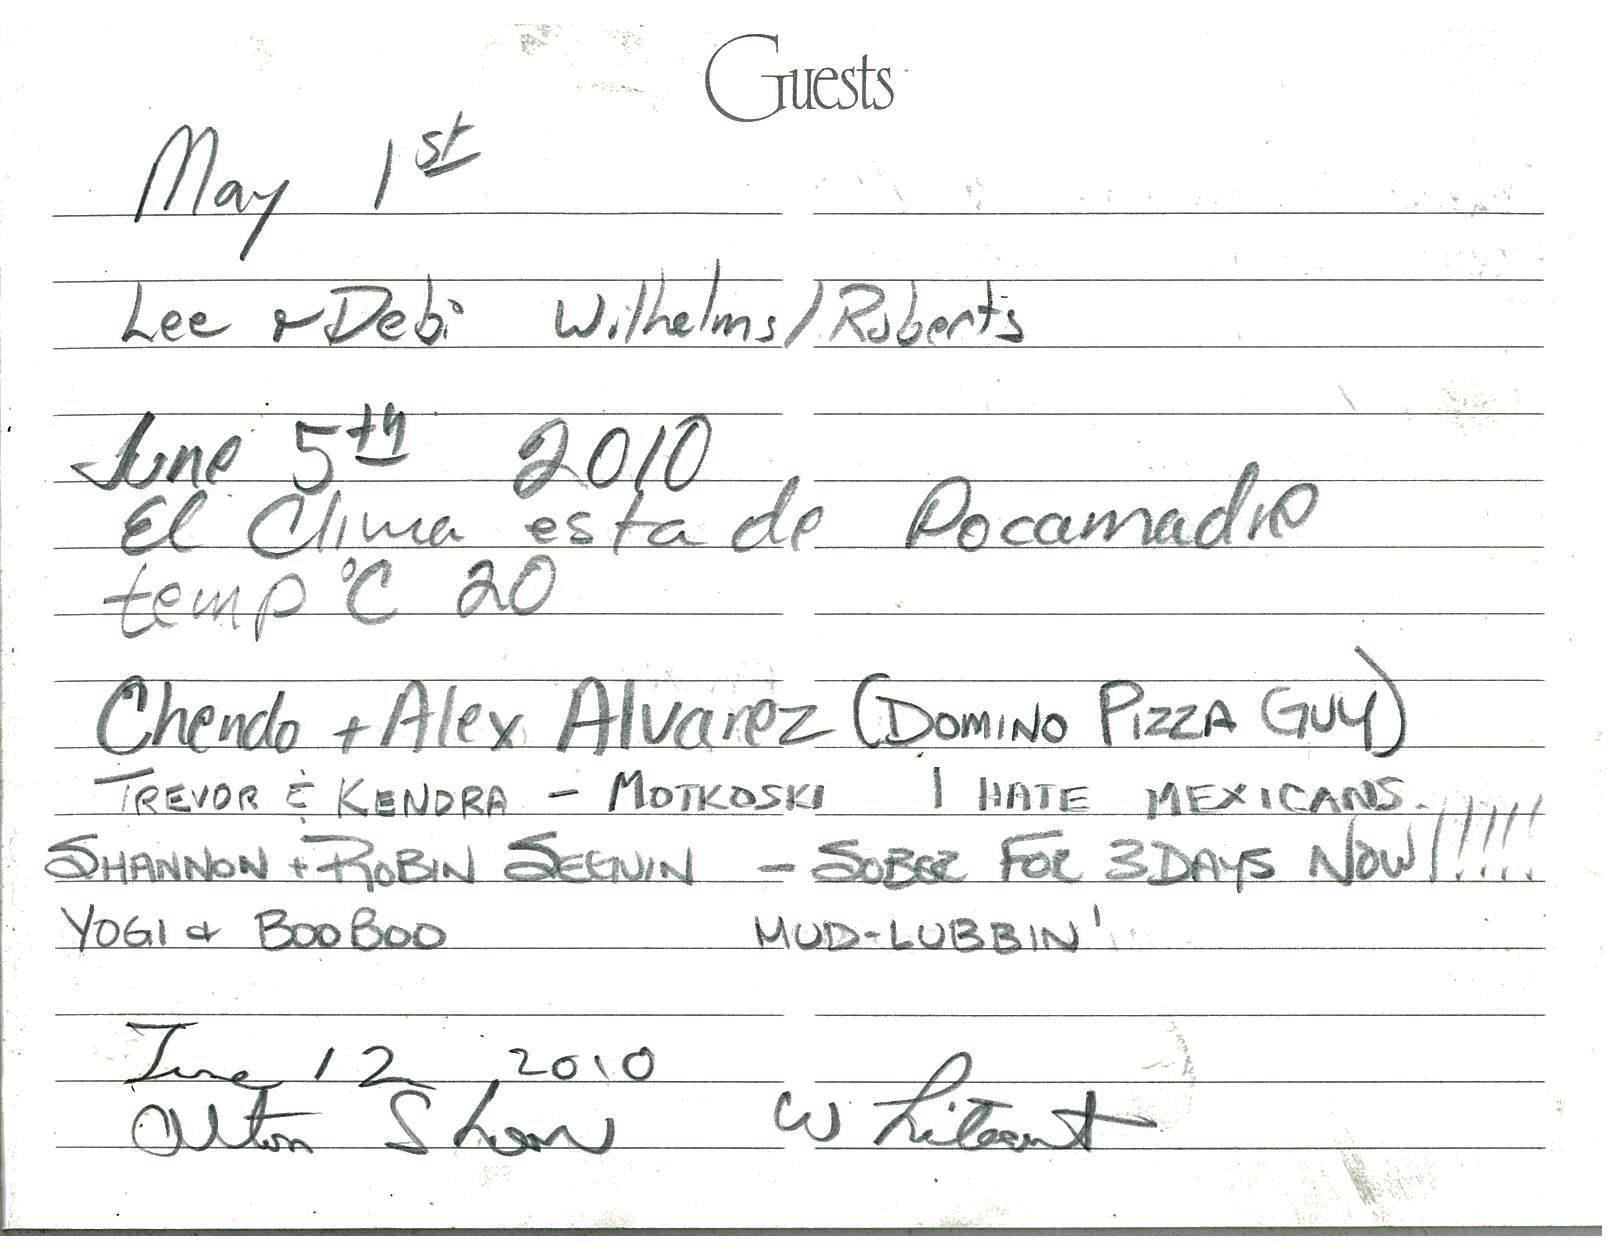 Guests
May 1st
Lee & Debi Wilhelms/Roberts
June 5th 2010
El Clima esta de Pocamadre
temp °C 20
Chendo + Alex Alvarez (DOMINO PIZZA GUY)
TREVOR & KENDRA - MOTKOSKI I HATE MEXICANS.
SHANNON + ROBIN SEGUIN - SOBER FOR 3 DAYS NOW!!!!!!
YOGI & BOOBOO MUD-LUBBIN'
June 12 2010
Alton Shaw